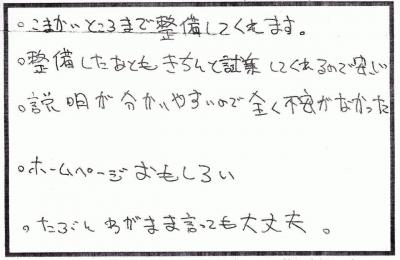 。こまかいところまで整備してくれます。
。整備したあともきちんと試乗してくれるので安心
。説明が分かりやすいので全く不安がなかった
。ホームページおもしろい
。たぶんわがまま言っても大丈夫。